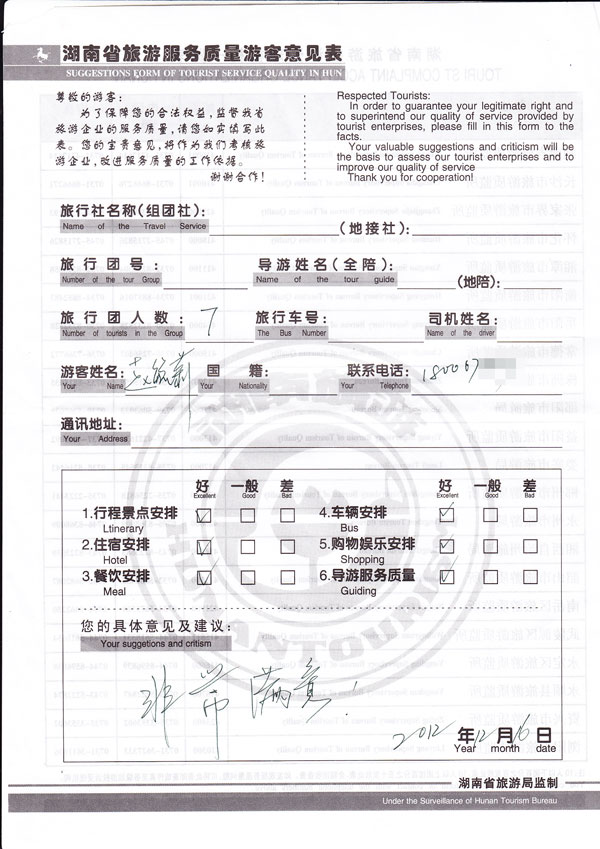 湖南省旅游服务质量游客意见表
SUGGESTIONS FORM OF TOURIST SERVICE QUALITY IN HUN
尊敬的游客:
为了保障您的合法权益,监督我省
旅游企业的服务质量,请您如实填写此
表。您的宝贵意见,将作为我们考核旅
游企业,改进服务质量的工作依据。
谢谢合作!
Respected Tourists:
In order to guarantee your legitimate right and
to superintend our quality of service provided by
tourist enterprises, please fill in this form to the
facts.
Your valuable suggestions and criticism will be
the basis to assess our tourist enterprises and to
improve our quality of service
Thank you for cooperation!
旅行社名称(组团社): (地接社):
Name of the Travel Service
旅行团号: 导游姓名(全陪): (地陪):
Name of the tour Group Name of the tour guide
旅行团人数: 7 旅行车号: 司机姓名:
Number of tourists in the Group The Bus Number Name of the driver
游客姓名: 国籍: 联系电话: 180067
Your Name Your Nationality Your Telephone
通讯地址:
Your Address
好 一般 差 好 一般 差
Excellent Good Bad Excellent Good Bad
1.行程景点安排 4.车辆安排
Ltinerary Bus
2.住宿安排 5.购物娱乐安排
Hotel Shopping
3.餐饮安排 6.导游服务质量
Meal Guiding
您的具体意见及建议:
Your suggetions and critism
非常满意!
2012 年 12 月 16 日
Year month date
湖南省旅游局监制
Under the Surveillance of Hunan Tourism Bureau